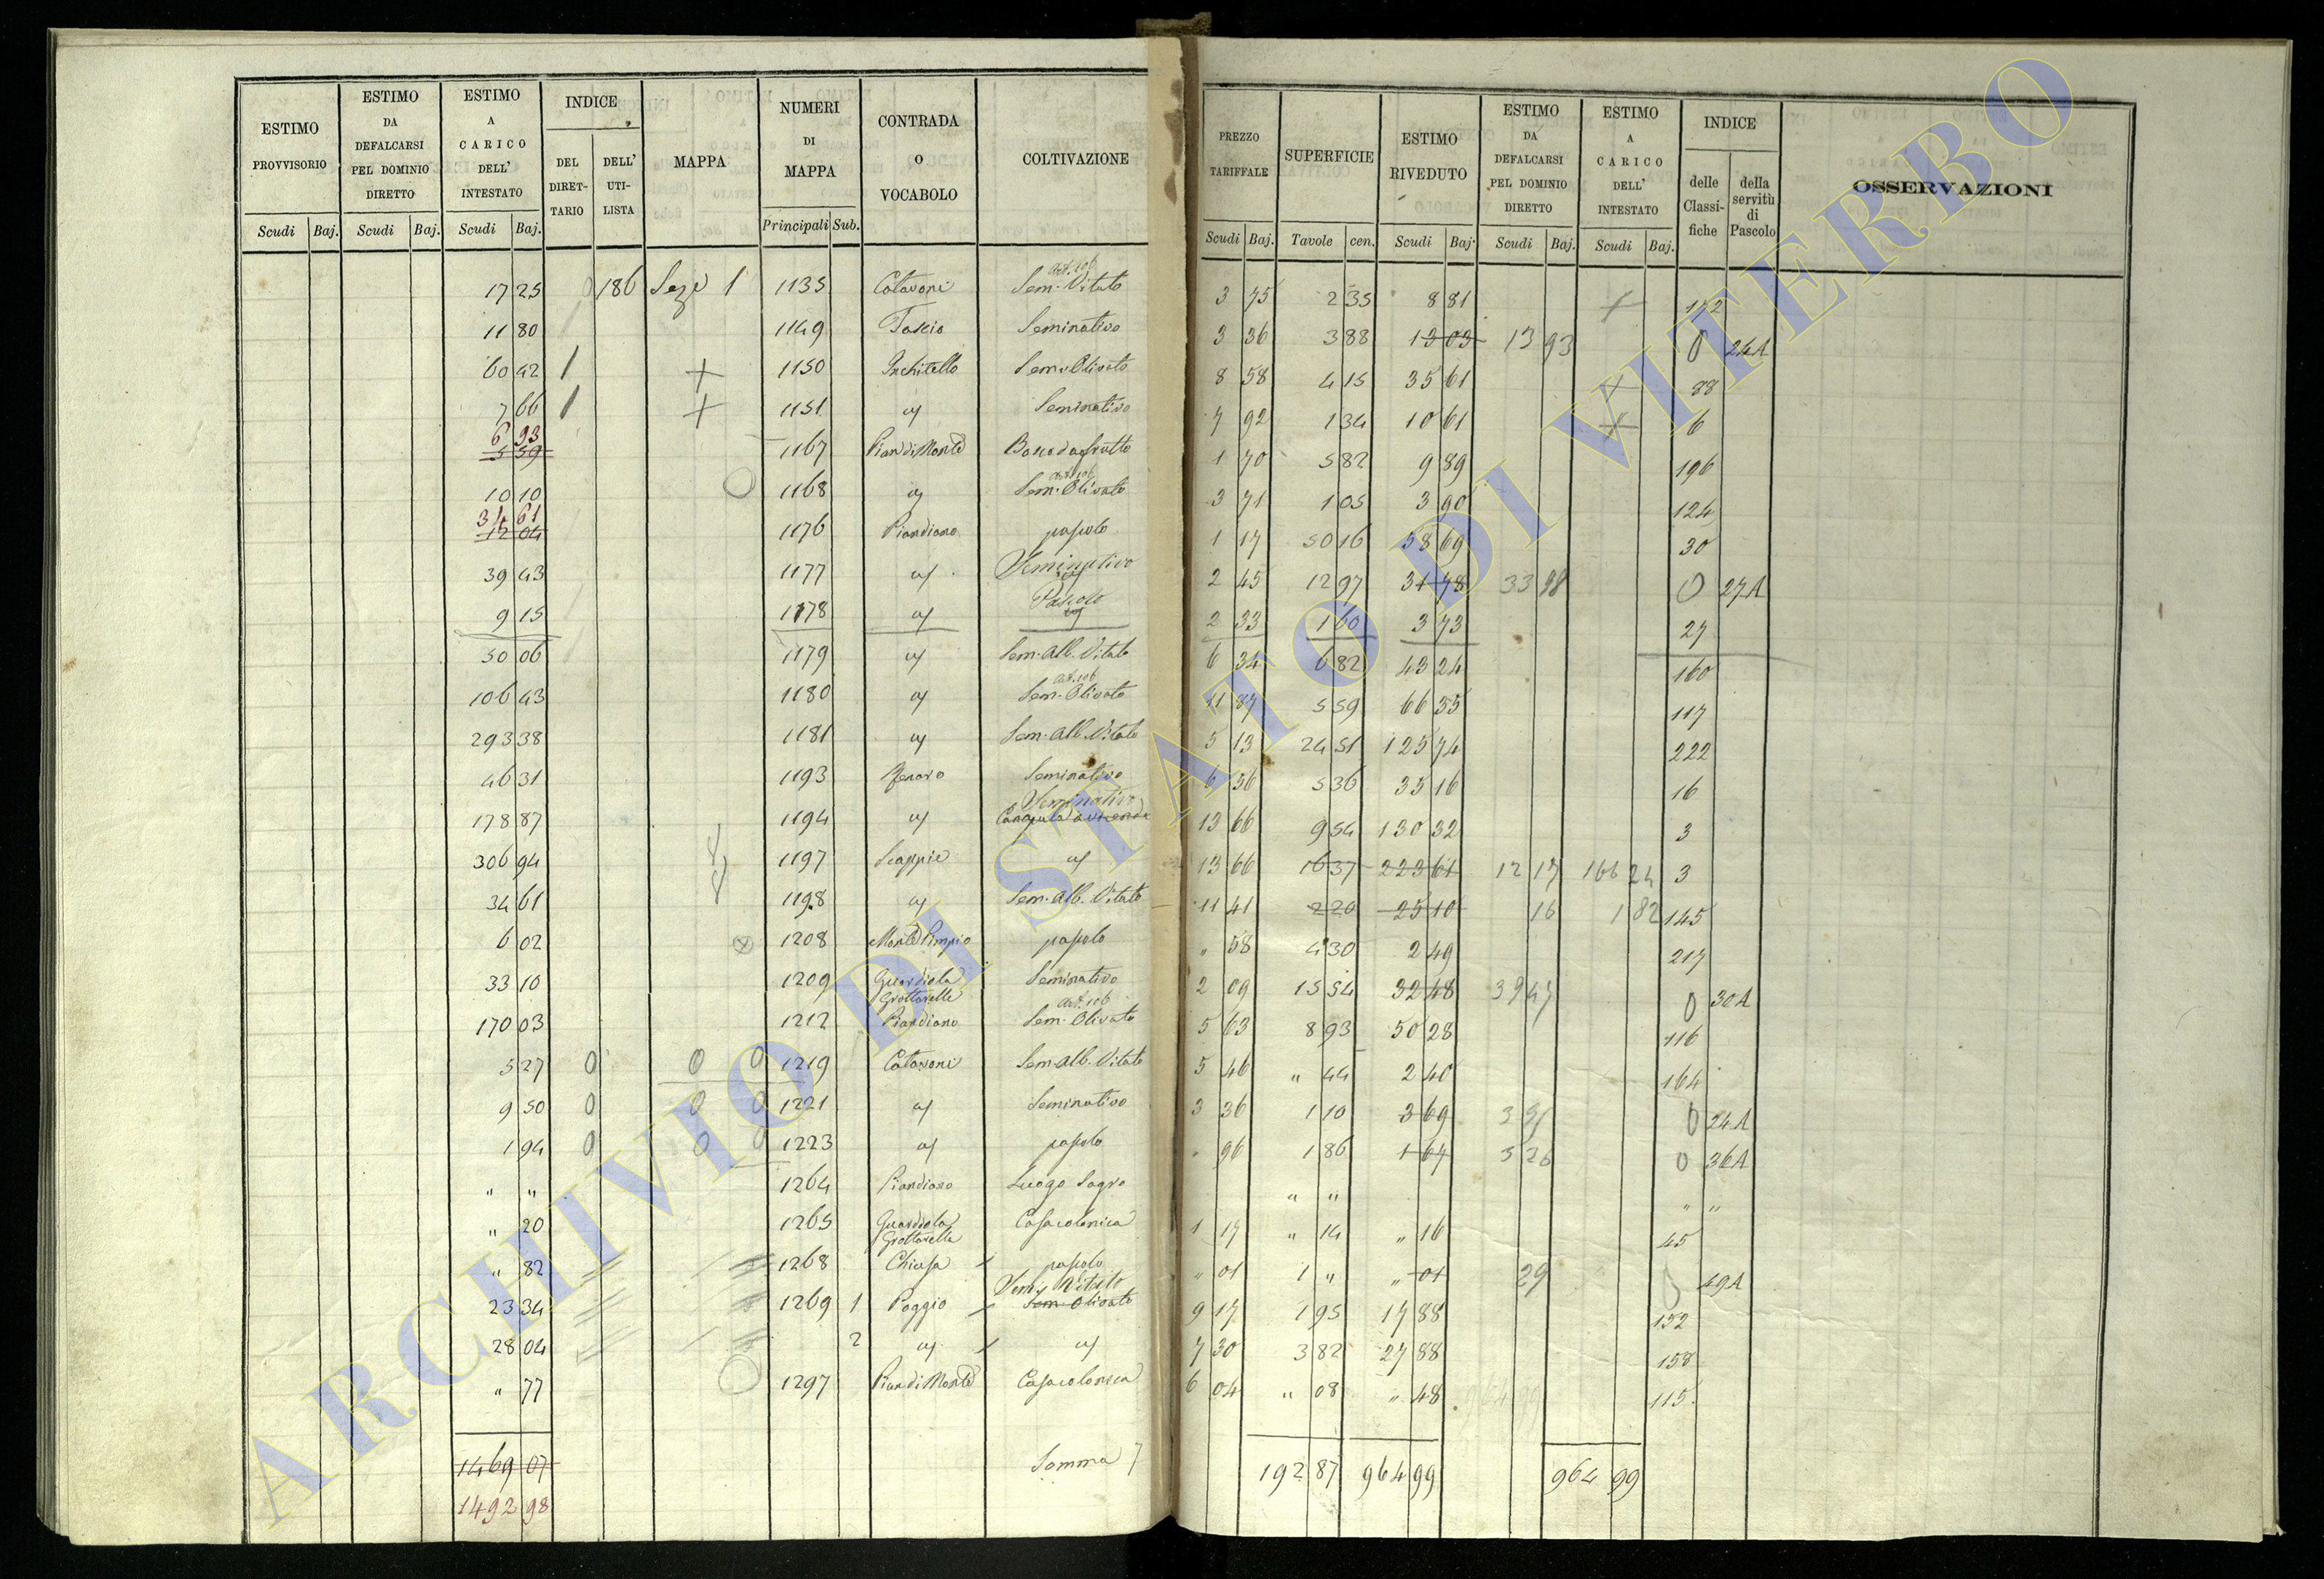 ESTIMO PROVVISORIO | ESTIMO DA DEFALCARSI PEL DOMINIO DIRETTO | ESTIMO A CARICO DELL' INTESTATO | INDICE | MAPPA | NUMERI DI MAPPA | CONTRADA O VOCABOLO | COLTIVAZIONE | PREZZO TARIFFALE | SUPERFICIE | ESTIMO RIVEDUTO | ESTIMO DA DEFALCARSI PEL DOMINIO DIRETTO | ESTIMO A CARICO DELL' INTESTATO | INDICE | OSSERVAZIONI
DEL DIRETTARIO | DELL' UTILISTA | delle Classifiche | della servitù di Pascolo
Scudi | Baj. | Scudi | Baj. | Scudi | Baj. | Principali | Sub. | Scudi | Baj. | Tavole | cen. | Scudi | Baj. | Scudi | Baj. | Scudi | Baj.
17 25 | 186 | Seze 1 | 1135 | Catavoni | Sem. Vitato art. 106 | 3 75 | 2 35 | 8 81 | + | 172
11 80 | 1149 | Seminativo | 3 36 | 3 88 | 13 03 | 13 93 | 0 | 24A
60 42 | 1 | + | 1150 | Sem. Olivato | 8 58 | 4 15 | 35 61 | + | 88
7 66 | 1 | + | 1151 | Seminativo | 7 92 | 1 34 | 10 61 | + | 6
6 93 | 5 59 | 1167 | Pian di Monte | Bosco da frutto | 1 70 | 5 82 | 9 89 | 196
10 10 | 1168 | Sem. Olivato art. 106 | 3 71 | 1 05 | 3 90 | 124
34 61 | 12 04 | 1176 | Piandiano | pascolo | 1 17 | 50 16 | 58 69 | 30
39 43 | 1177 | Seminativo | 2 45 | 12 97 | 31 78 | 33 98 | 0 | 27A
9 15 | 1178 | Pascolo | 2 33 | 1 60 | 3 73 | 27
50 06 | 1179 | Sem. Alb. Vitato | 6 34 | 6 82 | 43 24 | 160
106 43 | 1180 | Sem. Olivato art. 106 | 11 87 | 5 59 | 66 35 | 117
293 38 | 1181 | Sem. Alb. Vitato | 5 13 | 24 51 | 125 74 | 222
46 31 | 1193 | Seminativo | 6 56 | 5 36 | 35 16 | 16
178 87 | 1194 | Seminativo | 13 66 | 9 54 | 130 32 | 3
306 94 | 1197 | Scappie | 13 66 | 16 37 | 223 61 | 12 17 | 166 24 | 3
34 61 | 1198 | Sem. Alb. Vitato | 11 41 | 2 20 | 25 10 | 16 | 1 82 | 145
6 02 | 1208 | pascolo | " 58 | 4 30 | 2 49 | 217
33 10 | 1209 | Guardiola Grottarelle | Seminativo | 2 09 | 15 54 | 32 48 | 39 47 | 0 | 30A
170 03 | 1212 | Piandiano | Sem. Olivato art. 106 | 5 63 | 8 93 | 50 28 | 116
5 27 | 0 | 0 | 0 | 1219 | Catavoni | Sem. Alb. Vitato | 5 46 | " 44 | 2 40 | 164
9 50 | 0 | 0 | 0 | 1221 | Seminativo | 3 36 | 1 10 | 3 69 | 0 | 24A
1 94 | 0 | 0 | 0 | 1223 | pascolo | 96 | 1 86 | 1 64 | 5 26 | 0 | 36A
" " | 1264 | Piandiano | Luogo Sagro | " " | " "
" 20 | 1265 | Guardiola Grottarelle | Casa colonica | 1 17 | " 14 | " 16 | 45
" 82 | 1268 | Chiusa | pascolo | " 01 | 1 " | " 01 | 29 | 49A
23 34 | 1269 | 1 | Poggio | Sem. Vitato | Sem. Olivato | 9 17 | 1 95 | 17 88 | 152
28 04 | 2 | 7 30 | 3 82 | 27 88 | 158
" 77 | 1297 | Pian di Monte | Casa colonica | 6 04 | " 08 | " 48 | 115
1469 07 | Somma | 192 87 | 964 99 | 964 99
1492 98
ARCHIVIO DI STATO DI VITERBO